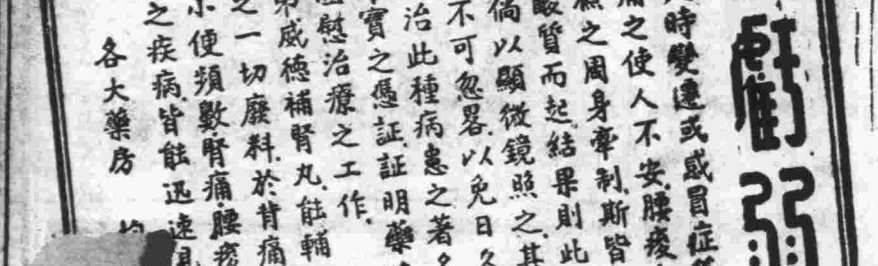 弱
時變遷或感冒症
痛之使人不安腰痠
之周身牽制斯皆
酸質而起結果則此
倘以顯微鏡照之其
不可忽畧以免日久
治此種病患之著名
寶之憑証証明藥
慰治療之工作
弟威德補腎丸能輔
之一切廢料於背痛
小便頻數腎痛腰痠
之疾病皆能迅速見
各大藥房